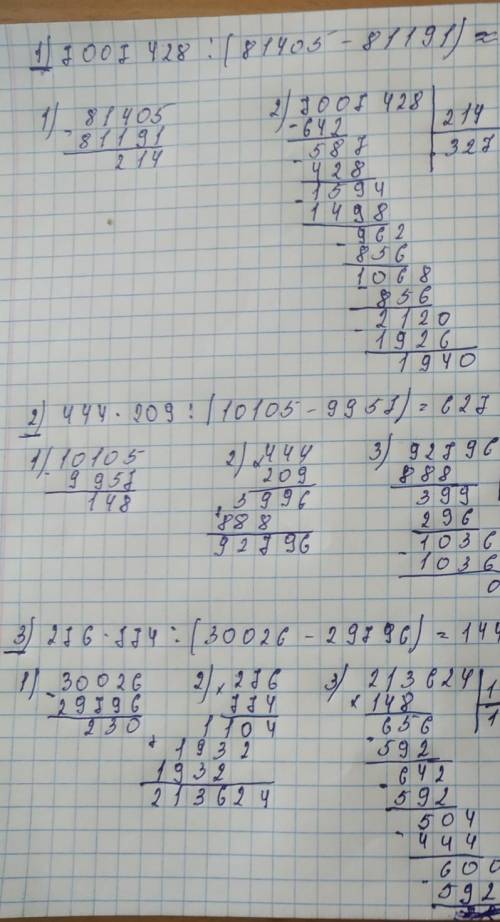 1) 7007 428 : (81405 - 81191) =
1) 81405
- 81191
214
2) 7007 428 | 214
- 642 | 327
- 587
428
- 1594
1498
- 962
856
- 1068
856
- 2120
1926
1940
2) 444 · 209 : (10105 - 9957) = 627
1) 10105
- 9957
148
2) × 444
209
3996
888
92796
3) 92796
888
399
296
- 1036
1036
0
3) 276 · 774 : (30026 - 29796) = 144
1) - 30026
29796
230
2) × 276
774
1104
+ 1932
1932
213624
3) 213624 | 1
148 | 1
656
- 592
- 642
592
- 504
444
- 600
592